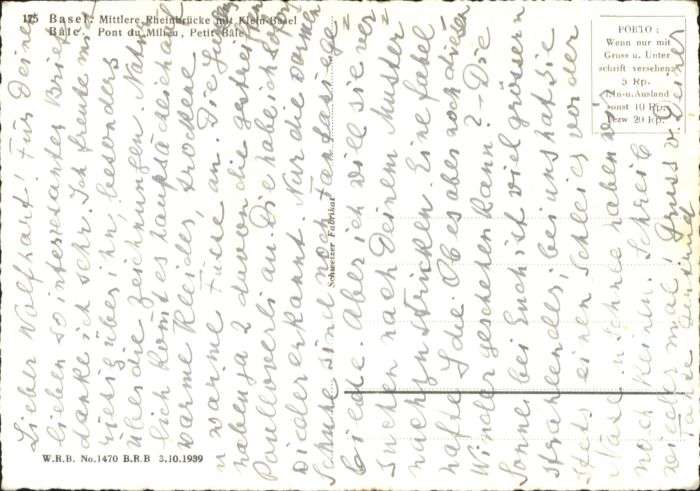 175 Basel: Mittlere Rheinbrücke mit Klein-Basel
Bâle: Pont du Milieu, Petit Bâle
PORTO:
Wenn nur mit
Gruss u. Unter
schrift versehen
5 Rp.
In-u. Ausland
sonst 10 Rp.
bezw 20 Rp.
Schweizer Fabrikat
W.R.B. No. 1470 B.R.B 3.10.1939
Lieber Wolfhart! Für Deinen
lieben so interessanter Brief
danke ich sehr. Ich freute mich
riesig über ihn, besonders
über die Zeichnungen.
lich komt es hauptsächlich auf
warme Kleider, trockene
warme Füsse an. Die
haben ja 2 davon die
Poulloverli an. Die habe ich sofort
wieder erkannt. Nur die warmen
Schuhe sind noch
Aber ich will sie ver
suchen nach Deinem Muster
nachzustricken. Eine fabel
hafte Idee. Ob es aber noch diesen
Winter geschehen kann? - Die
Sonne bei Euch ist viel grösser
strahlender, bei uns hat sie
stets einen Schleier vor der
Nase. Schnee haben wir
noch keinen. Schreib
wieder mal! Gruss v. Deiner